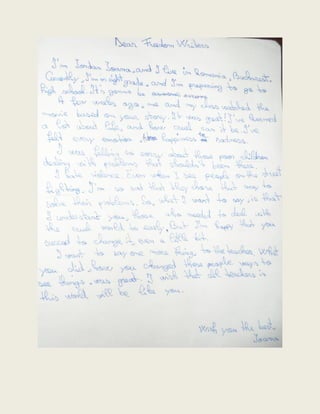 Dear Freedom Writers
I'm Iordan Ioana, and I live in Romania, Bucharest.
Currently, I'm in eight grade, and I'm preparing to go to
high school. It's gonna be awesome
A few weeks ago, me and my class watched the
movie based on your story. It was great! I've learned
a lot about life, and how cruel can it be. I've
felt every emotion happiness sadness.
I was feeling so sorry about those poor children
dealing with problems since been there.
I hate violence. Even when I see people on the street
fighting. I'm so sad that they chose that way to
solve their problems. So, what I want to say, is that
I understand you, those who needed to deal with
the cruel world so early, But I'm happy that you
succeed to change it, even a little bit.
I want to say one more thing, to the teacher, What
you did, how you changed those people ways to
see things, was great. I wish that all teachers in
this world will be like you.
Wish you the best,
Ioana